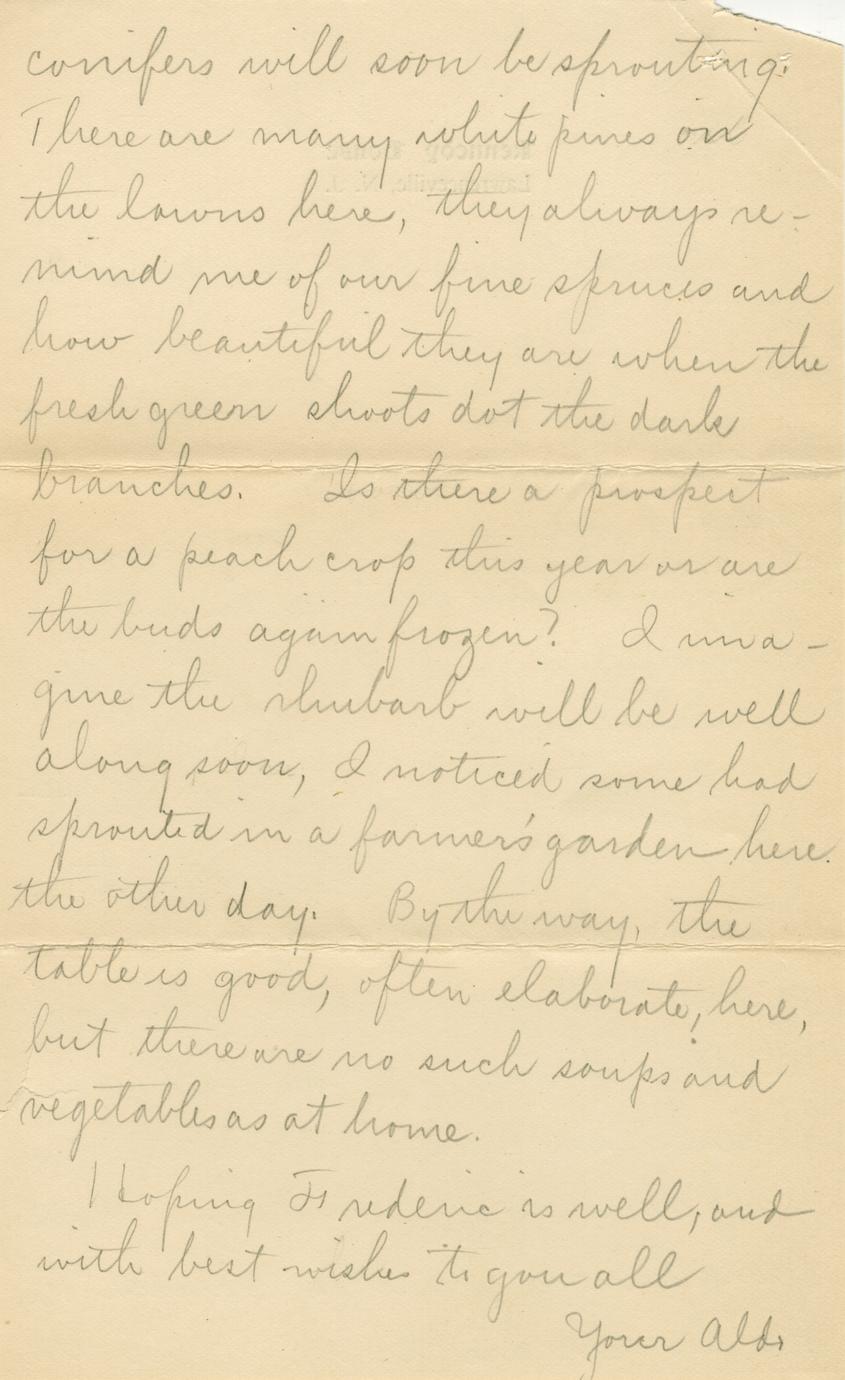 conifers will soon be sprouting.
There are many white pines on
the lawns here, they always re-
mind me of our fine spruces and
how beautiful they are when the
fresh green shoots dot the dark
branches. Is there a prospect
for a peach crop this year or are
the buds again frozen? I ima-
gine the rhubarb will be well
along soon, I noticed some had
sprouted in a farmer's garden here
the other day. By the way, the
table is good, often elaborate, here,
but there are no such soups and
vegetables as at home.
Hoping Frederic is well, and
with best wishes to you all
Your Aldo